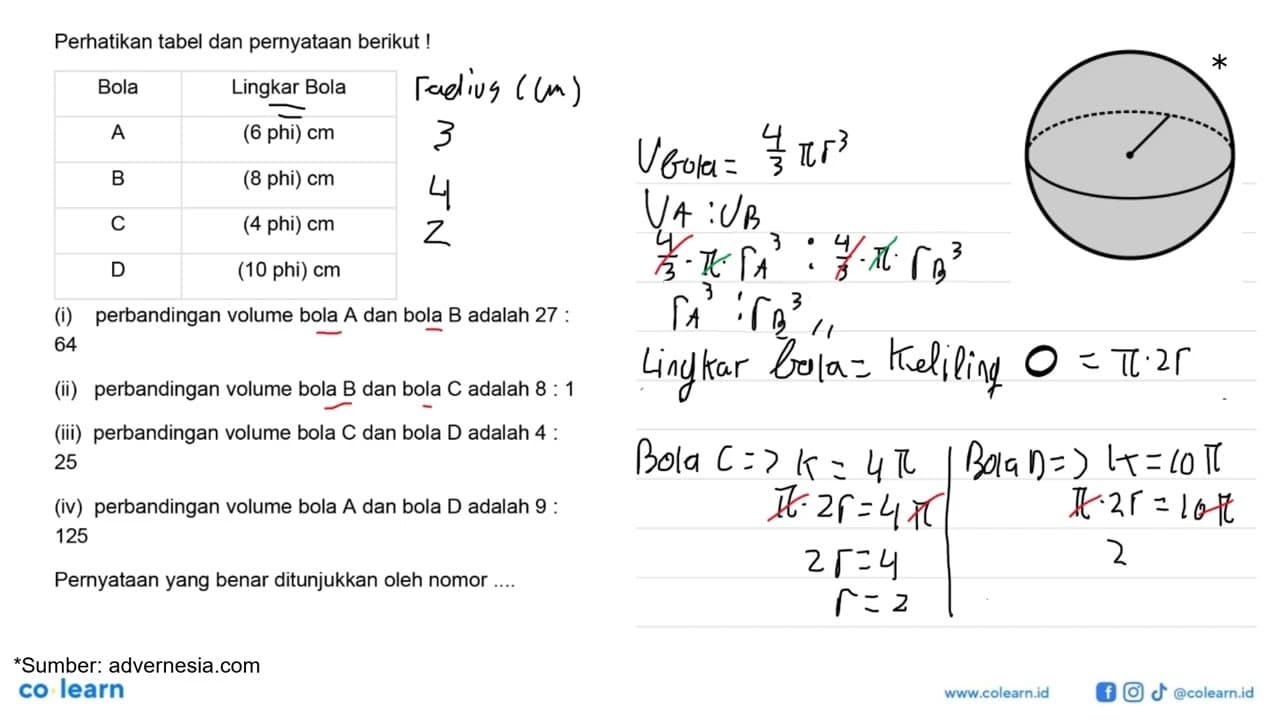 Perhatikan tabel dan pernyataan berikut !
Bola Lingkar Bola radius (cm)
A (6 phi) cm 3
B (8 phi) cm 4
C (4 phi) cm 2
D (10 phi) cm
(i) perbandingan volume bola A dan bola B adalah 27 :
64
(ii) perbandingan volume bola B dan bola C adalah 8 : 1
(iii) perbandingan volume bola C dan bola D adalah 4 :
25
(iv) perbandingan volume bola A dan bola D adalah 9 :
125
Pernyataan yang benar ditunjukkan oleh nomor ....
*
V bola = 4/3 πr³
VA : VB
4/3 · π · rA³ : 4/3 · π · rB³
rA³ : rB³ //
Lingkar bola = Keliling O = π · 2r
Bola C => K = 4π
π · 2r = 4π
2r = 4
r = 2
Bola D => K = 10π
π · 2r = 10π
2
*Sumber: advernesia.com
co learn
www.colearn.id @colearn.id